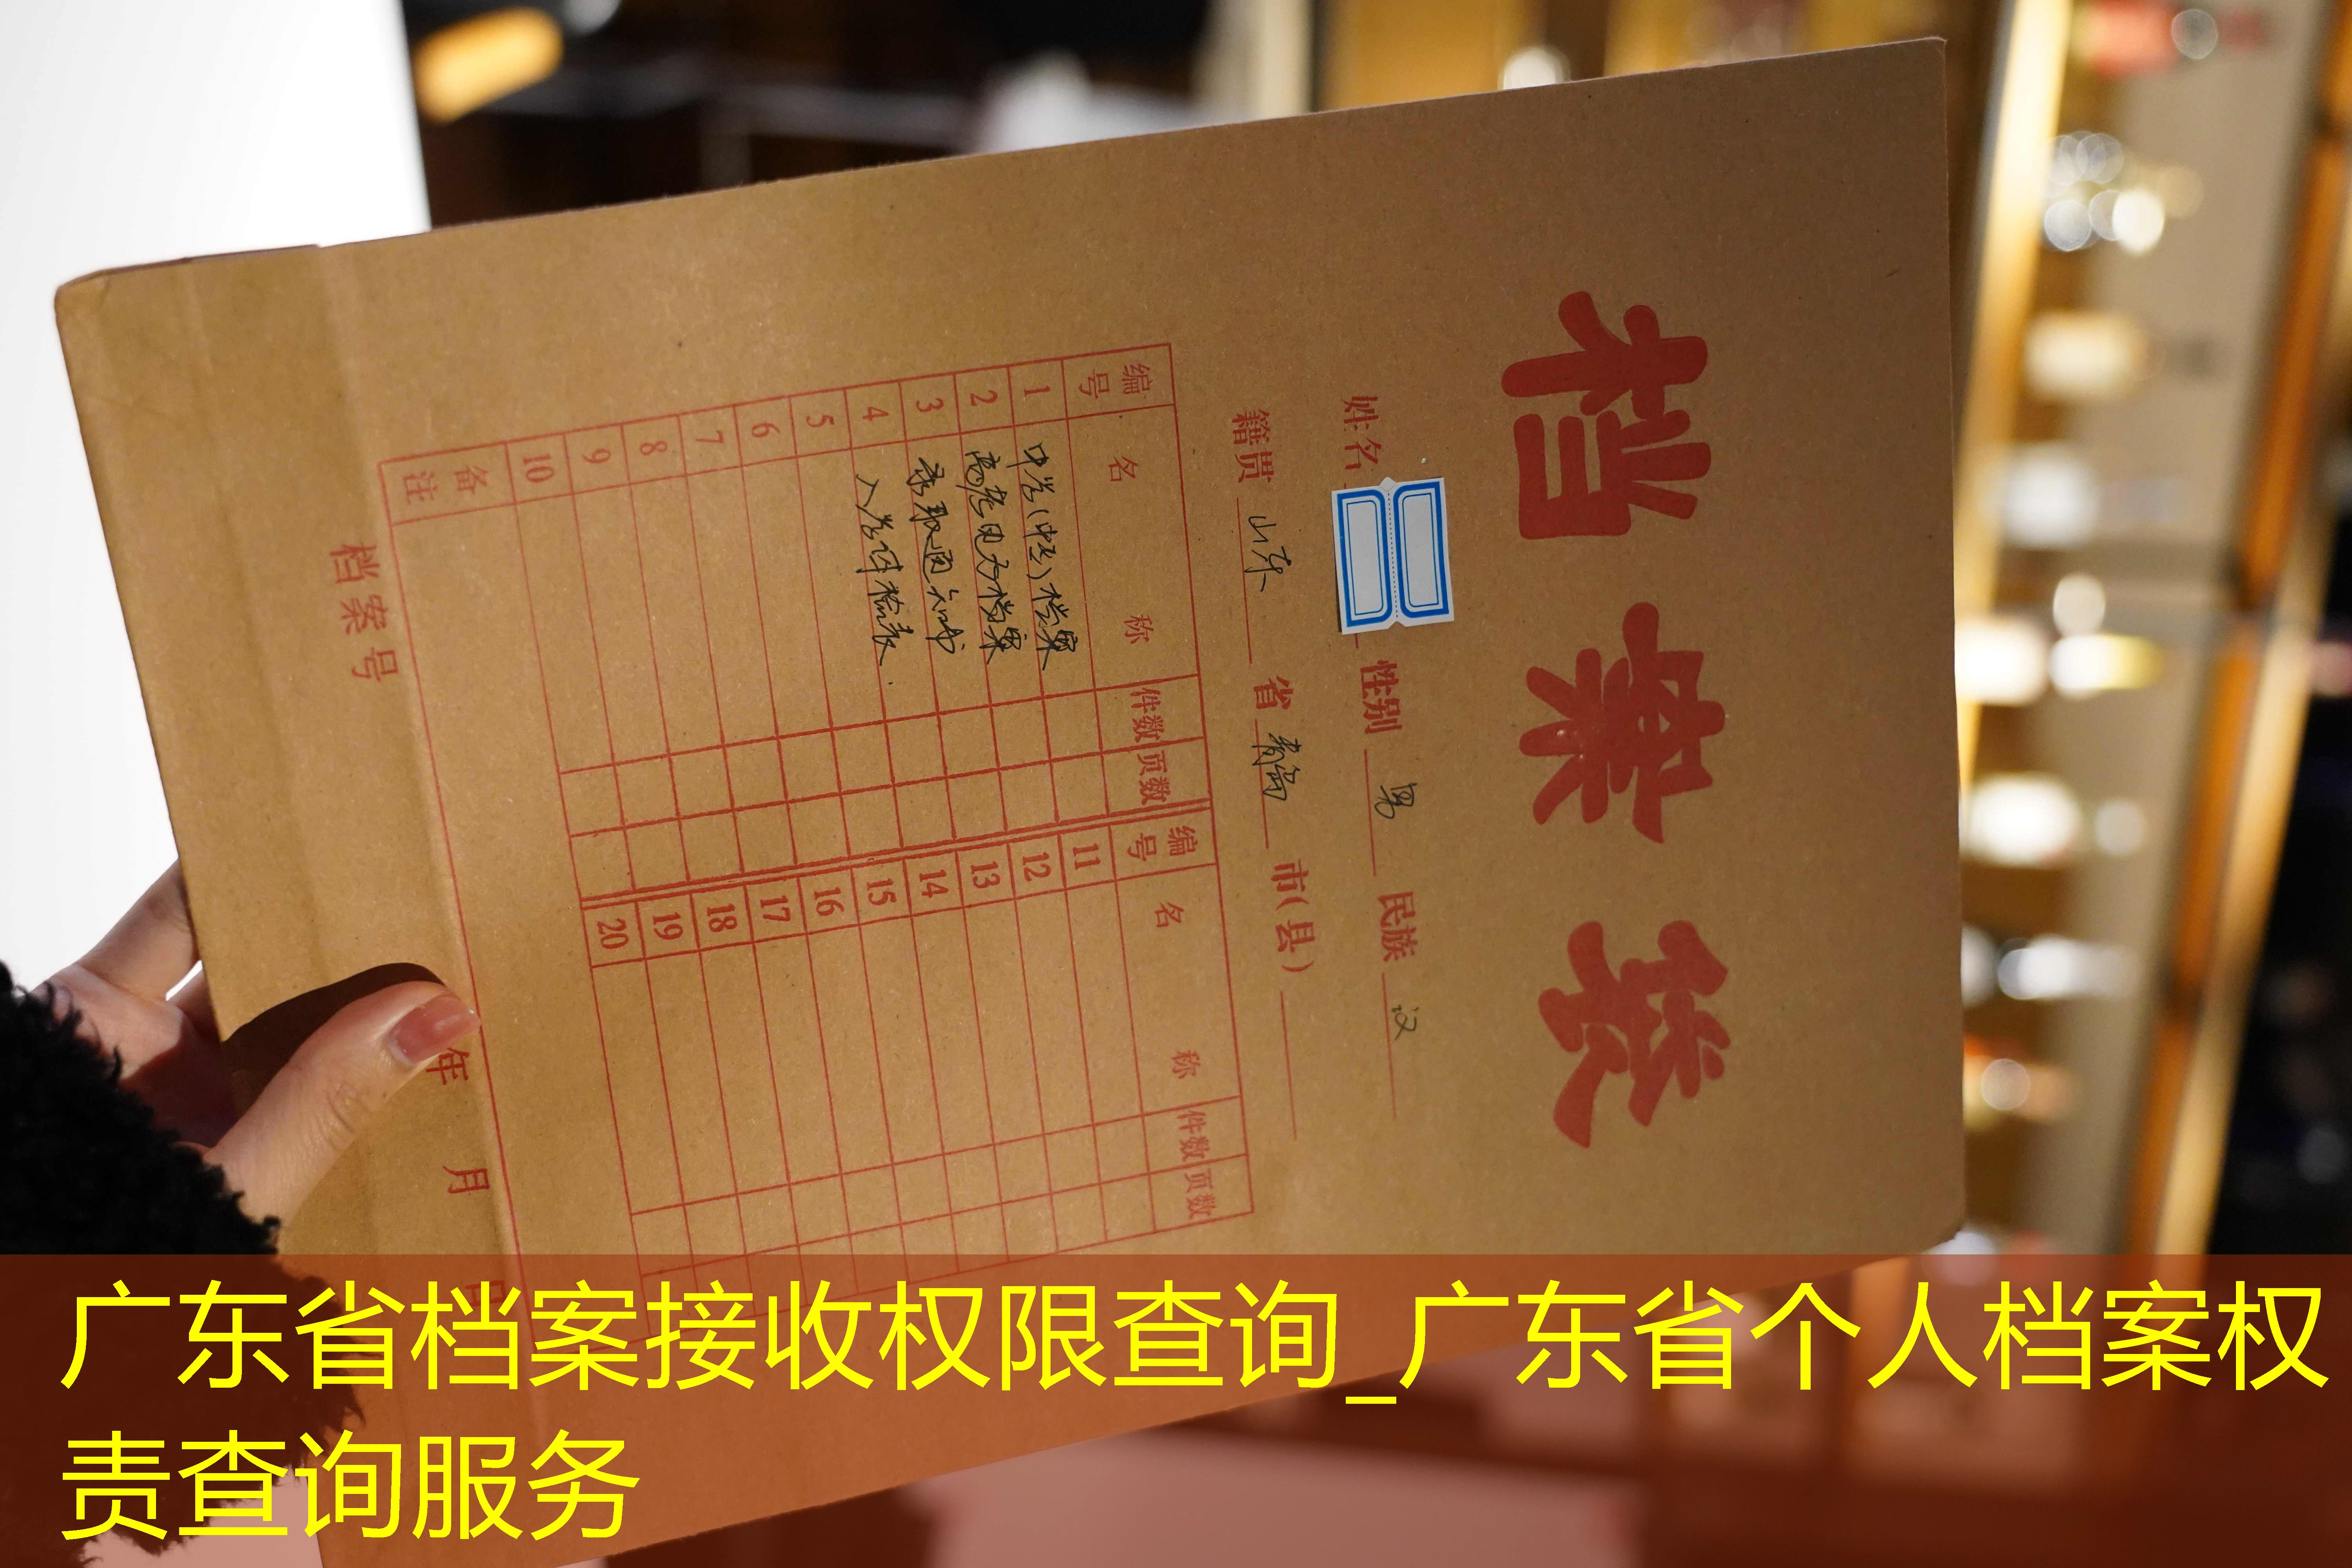 档案袋
姓名 性别 男 民族 汉
籍贯 山东 省 青岛 市(县)
编号 名称 件数 页数 编号 名称 件数 页数
1 中学(中专)档案 11
2 高考电子档案 12
3 录取通知书 13
4 入学体检表 14
5 15
6 16
7 17
8 18
9 19
10 20
备注
档案号 年 月 日
广东省档案接收权限查询_广东省个人档案权
责查询服务